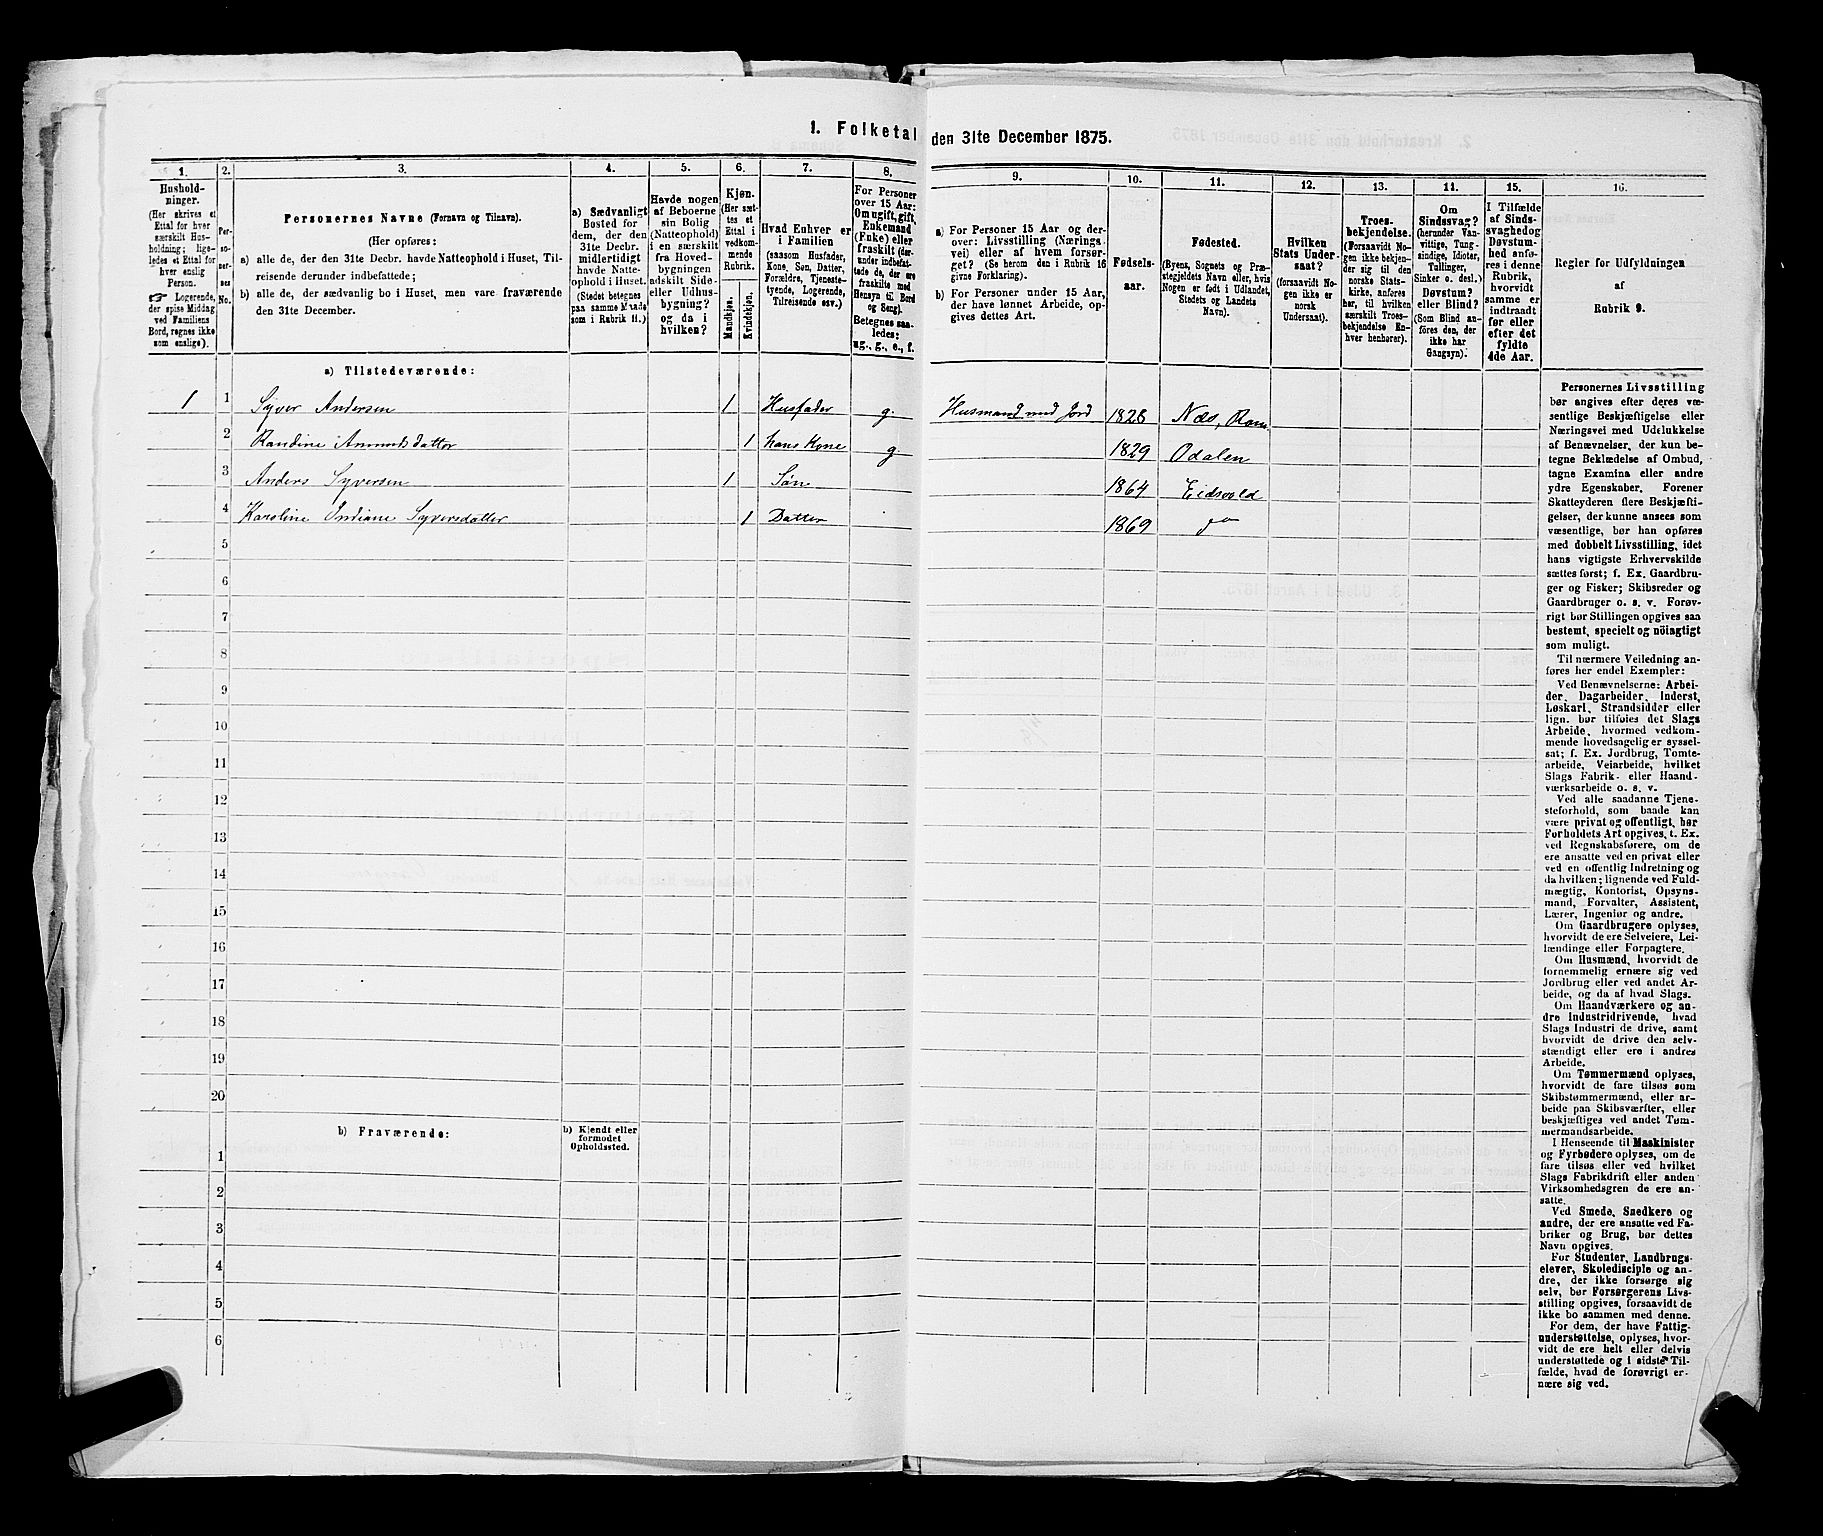 1. Folketal den 31te December 1875.
1. 2. 3. 4. 5. 6. 7. 8. 9. 10. 11. 12. 13. 14. 15. 16.
Hushold-
ninger.
(Her skrives et
Ettal for hver
særskilt Hus-
holdning; lige-
ledes et Ettal for
hver enslig
Person.
☞ Logerende,
der spise Middag
ved Familiens
Bord, regnes ikke
som enslige).
Per-
so-
ner-
nes
No.
Personernes Navne (Fornavn og Tilnavn).
(Her opføres:
a) alle de, der den 31te Decbr. havde Natteophold i Huset, Til-
reisende derunder indbefattede;
b) alle de, der sædvanlig bo i Huset, men vare fraværende
den 31te December.
a) Sædvanligt
Bosted for
dem, der den
31te Decbr.
midlertidigt
havde Natte-
ophold i Huset.
(Stedet betegnes
paa samme Maade
som i Rubrik 11.)
Havde nogen
af Beboerne
sin Bolig
(Natteophold)
i en særskilt
fra Hoved-
bygningen
adskilt Side-
eller Udhus-
bygning?
og da i
hvilken?
Kjøn.
(Her sæt-
tes et
Ettal i
vedkom-
mende
Rubrik.
Mandkjøn.
Kvindekjøn.
Hvad Enhver er
i Familien
(saasom Husfader,
Kone, Søn, Datter,
Forældre, Tjeneste-
tyende, Logerende,
Tilreisende osv.)
For Personer
over 15 Aar:
Om ugift, gift,
Enkemand
(Enke) eller
fraskilt (der-
under indbefat-
tede de, der ere
fraskilte med
Hensyn til Bord
og Seng).
Betegnes saa-
ledes:
ug., g., e., f.
a) For Personer 15 Aar og der-
over: Livsstilling (Nærings-
vei) eller af hvem forsør-
get? (Se herom den i Rubrik 16
givne Forklaring).
b) For Personer under 15 Aar,
der have lønnet Arbeide, op-
gives dettes Art.
Fødsels-
aar.
Fødested.
(Byens, Sognets og Præ-
stegjeldets Navn eller, hvis
Nogen er født i Udlandet,
Stedets og Landets
Navn).
Hvilken
Stats Under-
saat?
(forsaavidt No-
gen ikke er
norsk
Undersaat).
Troes-
bekjendelse.
(Forsaavidt No-
gen ikke bekjen-
der sig til den
norske Stats-
kirke, anføres
her, til hvilken
særskilt Troes-
bekjendelse En-
hver henhører).
Om
Sindssvag?
(herunder Van-
vittige, Tung-
sindige, Idioter,
Tullinger,
Sinker o. desl.)
Døvstum?
eller Blind?
(Som Blind an-
føres den, der
ikke har
Gangsyn).
I Tilfælde
af Sinds-
svaghed og
Døvstum-
hed anfø-
res i denne
Rubrik,
hvorvidt
samme er
indtraadt
før eller
efter det
fyldte
4de Aar.
Regler for Udfyldningen
af
Rubrik 9.
a) Tilstedeværende:
1 1 Syver Andersen 1 Husfader g. Husmand med Jord 1828 Næs, Rom.
2 Randine Amundsdatter 1 hans Kone g. 1829 Odalen
3 Anders Syversen 1 Søn 1864 Eidsvold
4 Karoline Indiane Syversdatter 1 Datter 1869 do
5
6
7
8
9
10
11
12
13
14
15
16
17
18
19
20
b) Fraværende:
b) Kjendt eller
formodet
Opholdssted.
1
2
3
4
5
6
Personernes Livsstilling
bør angives efter deres væ-
sentlige Beskjæftigelse eller
Næringsvei med Udelukkelse
af Benævnelser, der kun be-
tegne Beklædelse af Ombud,
tagne Examina eller andre
ydre Egenskaber. Forener
Skatteyderen flere Beskjæfti-
gelser, der kunne ansees som
væsentlige, bør han opføres
med dobbelt Livsstilling, idet
hans vigtigste Erhvervskilde
sættes først; f. Ex. Gaardbru-
ger og Fisker; Skibsreder og
Gaardbruger o. s. v. Forøv-
rigt bør Stillingen opgives saa
bestemt, specielt og nöiagtigt
som muligt.
Til nærmere Veiledning an-
føres her endel Exempler:
Ved Benævnelserne: Arbei-
der, Dagarbeider, Inderst,
Løskarl, Strandsidder eller
lign. bør tilføies det Slags
Arbeide, hvormed vedkom-
mende hovedsagelig er syssel-
sat; f. Ex. Jordbrug, Tomte-
arbeide, Veiarbeide, hvilket
Slags Fabrik- eller Haand-
værksarbeide o. s. v.
Ved alle saadanne Tjene-
steforhold, som baade kan
være privat og offentligt, bør
Forholdets Art opgives, t. Ex.
ved Regnskabsførere, om de
ere ansatte ved en privat eller
ved en offentlig Indretning og
da hvilken; lignende ved Fuld-
mægtig, Kontorist, Opsyns-
mand, Forvalter, Assistent,
Lærer, Ingeniør og andre.
Om Gaardbrugere oplyses,
hvorvidt de ere Selveiere, Lei-
lændinge eller Forpagtere.
Om Husmænd, hvorvidt de
fornemmelig ernære sig ved
Jordbrug eller ved andet Ar-
beide, og da af hvad Slags.
Om Haandværkere og an-
dre Industridrivende, hvad
Slags Industri de drive, samt
hvorvidt de drive den selv-
stændigt eller ere i andres
Arbeide.
Om Tømmermænd oplyses,
hvorvidt de fare tilsøs som
Skibstømmermænd, eller ar-
beide paa Skibsværfter, eller
beskjæftiges ved andet Tøm-
mermandsarbeide.
I Henseende til Maskinister
og Fyrbødere oplyses, om de
fare tilsøs eller ved hvilket
Slags Fabrikdrift eller anden
Virksomhedsgren de ere an-
satte.
Ved Smede, Snedkere og
andre, der ere ansatte ved Fa-
briker og Brug, bør dettes
Navn opgives.
For Studenter, Landbrugs-
elever, Skoledisciple og an-
dre, der ikke forsørge sig
selv, bør Forsørgerens Livs-
stilling opgives, forsaavidt de
ikke bo sammen med denne.
For dem, der have Fattig-
understøttelse, oplyses, hvor-
vidt de ere helt eller delvis
understøttede og i sidste Til-
fælde, hvad de forøvrigt er-
nære sig ved.